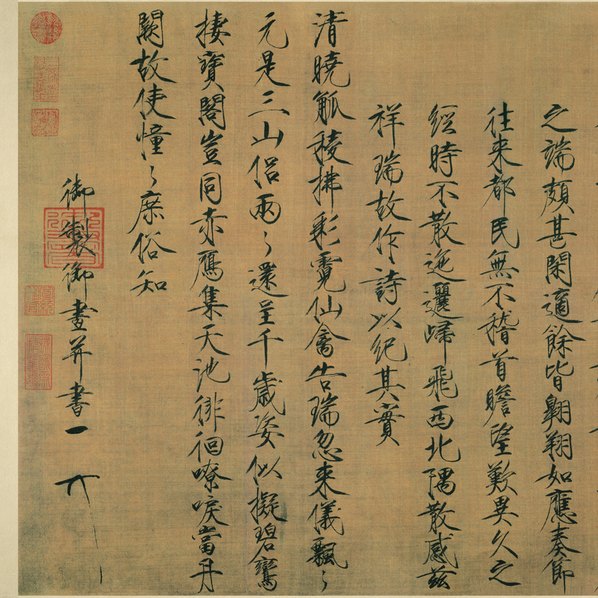 之端頗甚閑適餘皆翱翔如應奏節
往来都民無不稽首瞻望歎異久之
經時不散迤邐歸飛西北隅散感兹
祥瑞故作詩以紀其實
清曉觚稜拂彩霓仙禽告瑞忽来儀飄〻
元是三山侶兩〻還呈千歲姿似擬碧鸞
棲寶閣豈同赤鴈集天池徘徊嘹唳當丹
闕故使憧〻庶俗知
御製御畫并書